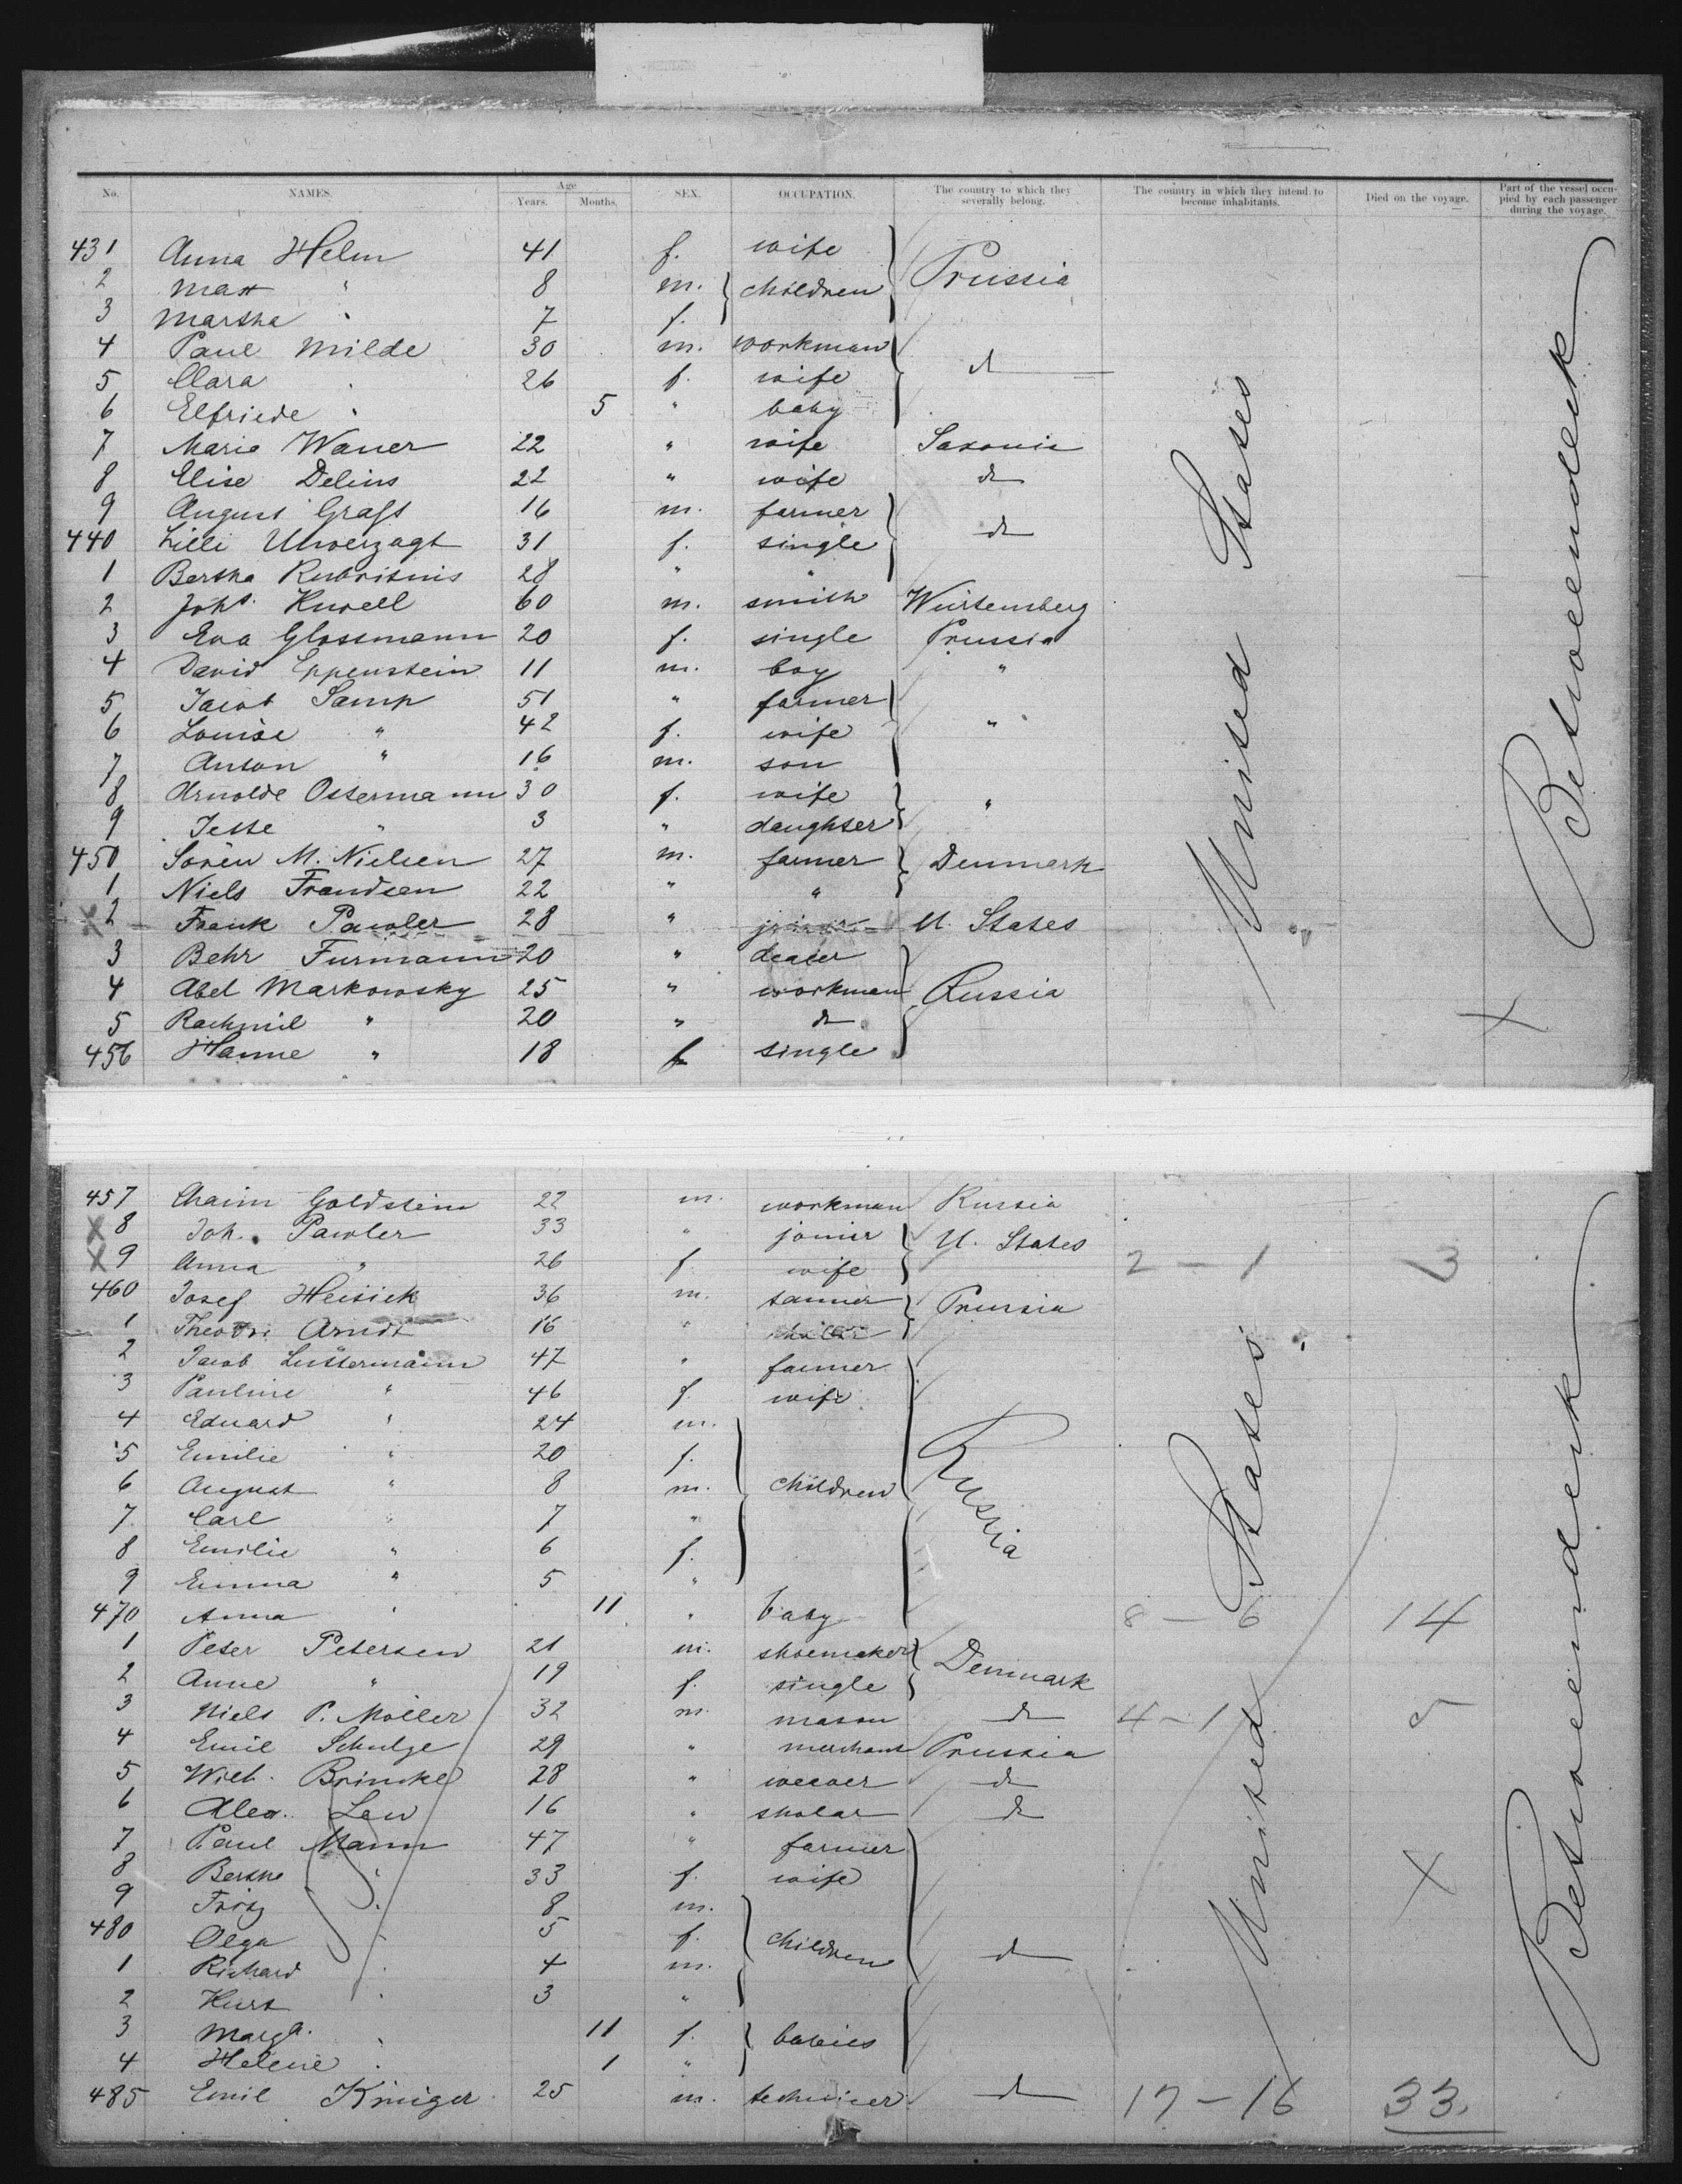 No. NAMES. Age Years. Months. SEX. OCCUPATION. The country to which they severally belong. The country in which they intend to become inhabitants. Died on the voyage. Part of the vessel occupied by each passenger during the voyage.
431 Anna Helm 41 f. wife Prussia
2 Max " 8 m. children
3 Martha " 7 f.
4 Paul Milde 30 m. workman d
5 Clara " 26 f. wife
6 Elfriede " 5 " baby
7 Maria Waner 22 " wife Saxonia
8 Elise Delius 22 " wife d
9 August Graft 16 m. farmer d
440 Lilli Unverzagt 31 f. single
1 Bertha 28 " "
2 Joh. Knvell 60 m. smith Würtemberg
3 Eva Glossmann 20 f. single Prussia
4 David Eppenstein 11 m. boy "
5 Jacob Samp 51 " farmer "
6 Louise " 42 f. wife
7 Anton " 16 m. son
8 Arnolde Ostermann 30 f. wife "
9 Jette " 3 " daughter
450 Sören M. Nielsen 27 m. farmer Denmark
1 Niels Frandsen 22 " "
X 2 Frank Pawler 28 " U. States
3 Behr Furmann 20 " dealer Russia
4 Abel Markowsky 25 " workman
5 Rachmil " 20 " d
456 Hanne " 18 f single
United States
Betweendeck
X
457 Chaim Goldstein 22 m. workman Russia
X 8 Joh. Pawler 33 " joiner U. States
X 9 Anna " 26 f. wife 2 - 1 3
460 Josef Heisick 36 m. tanner Prussia
1 Theodor Arndt 16 "
2 Jacob Lustermann 47 " farmer Russia
3 Pauline " 46 f. wife
4 Eduard " 24 m. children
5 Emilie " 20 f.
6 August " 8 m.
7 Carl " 7 "
8 Emilie " 6 f.
9 Emma " 5 "
470 Anna " 11 " baby 8 - 6 14
1 Peter Petersen 21 m. shoemaker Denmark
2 Anne " 19 f. single
3 Niels P. Möller 32 m. mason d 4 - 1 5
4 Emil Schulze 29 " merchant Prussia
5 Wilh. Brincke 28 " weaver d
6 Alex. Lew 16 " skolar d
7 Paul Mann 47 " farmer d
8 Berthe " 33 f. wife
9 Fritz " 8 m. children
480 Olga " 5 f.
1 Richard " 4 m.
2 Kurt " 3 "
3 Marga. " 11 f. babies
4 Helene " 1 "
485 Emil Krüger 25 m. technicer d 17 - 16 33.
United States
X
Betweendeck